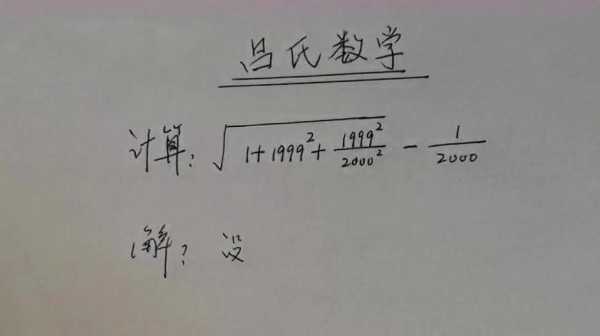 吕氏数学
计算: √(1+1999²+1999²/2000²) - 1/2000
解: 设